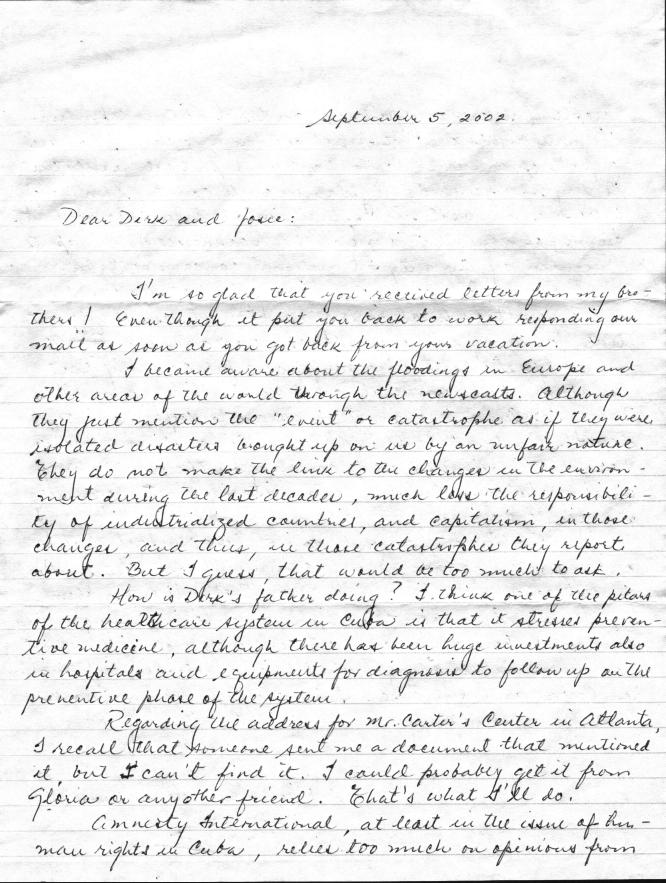 September 5, 2002.
Dear Dirk and Josie:
I'm so glad that you received letters from my bro-
thers! Even though it put you back to work responding our
mail as soon as you got back from your vacation.
I became aware about the floodings in Europe and
other areas of the world through the newscasts. Although
they just mention the "event" or catastrophe as if they were
isolated disasters brought up on us by an unfair nature.
They do not make the link to the changes in the environ-
ment during the last decades, much less the responsibili-
ty of industrialized countries, and capitalism, in those
changes, and thus, in those catastrophes they report
about. But I guess, that would be too much to ask.
How is Dirk's father doing? I think one of the pilars
of the healthcare system in Cuba is that it stresses preven-
tive medicine, although there has been huge investments also
in hospitals and equipments for diagnosis to follow up on the
preventive phase of the system.
Regarding the address for Mr. Carter's Center in Atlanta,
I recall that someone sent me a document that mentioned
it, but I can't find it. I could probably get it from
Gloria or any other friend. That's what I'll do.
Amnesty International, at least in the issue of hu-
man rights in Cuba, relies too much on opinions from